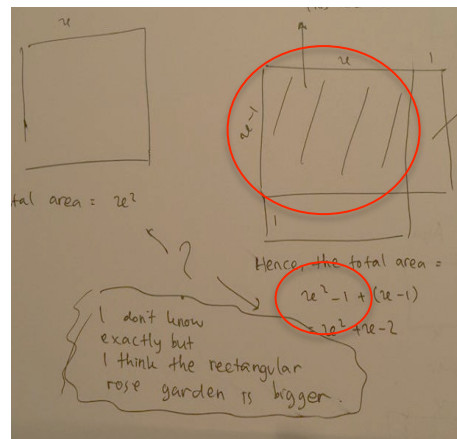 x
x
1
x-1
1
tal area = x²
?
Hence, the total area =
x² - 1 + (x-1)
= x² + x - 2
I don't know
exactly but
I think the rectangular
rose garden is bigger.